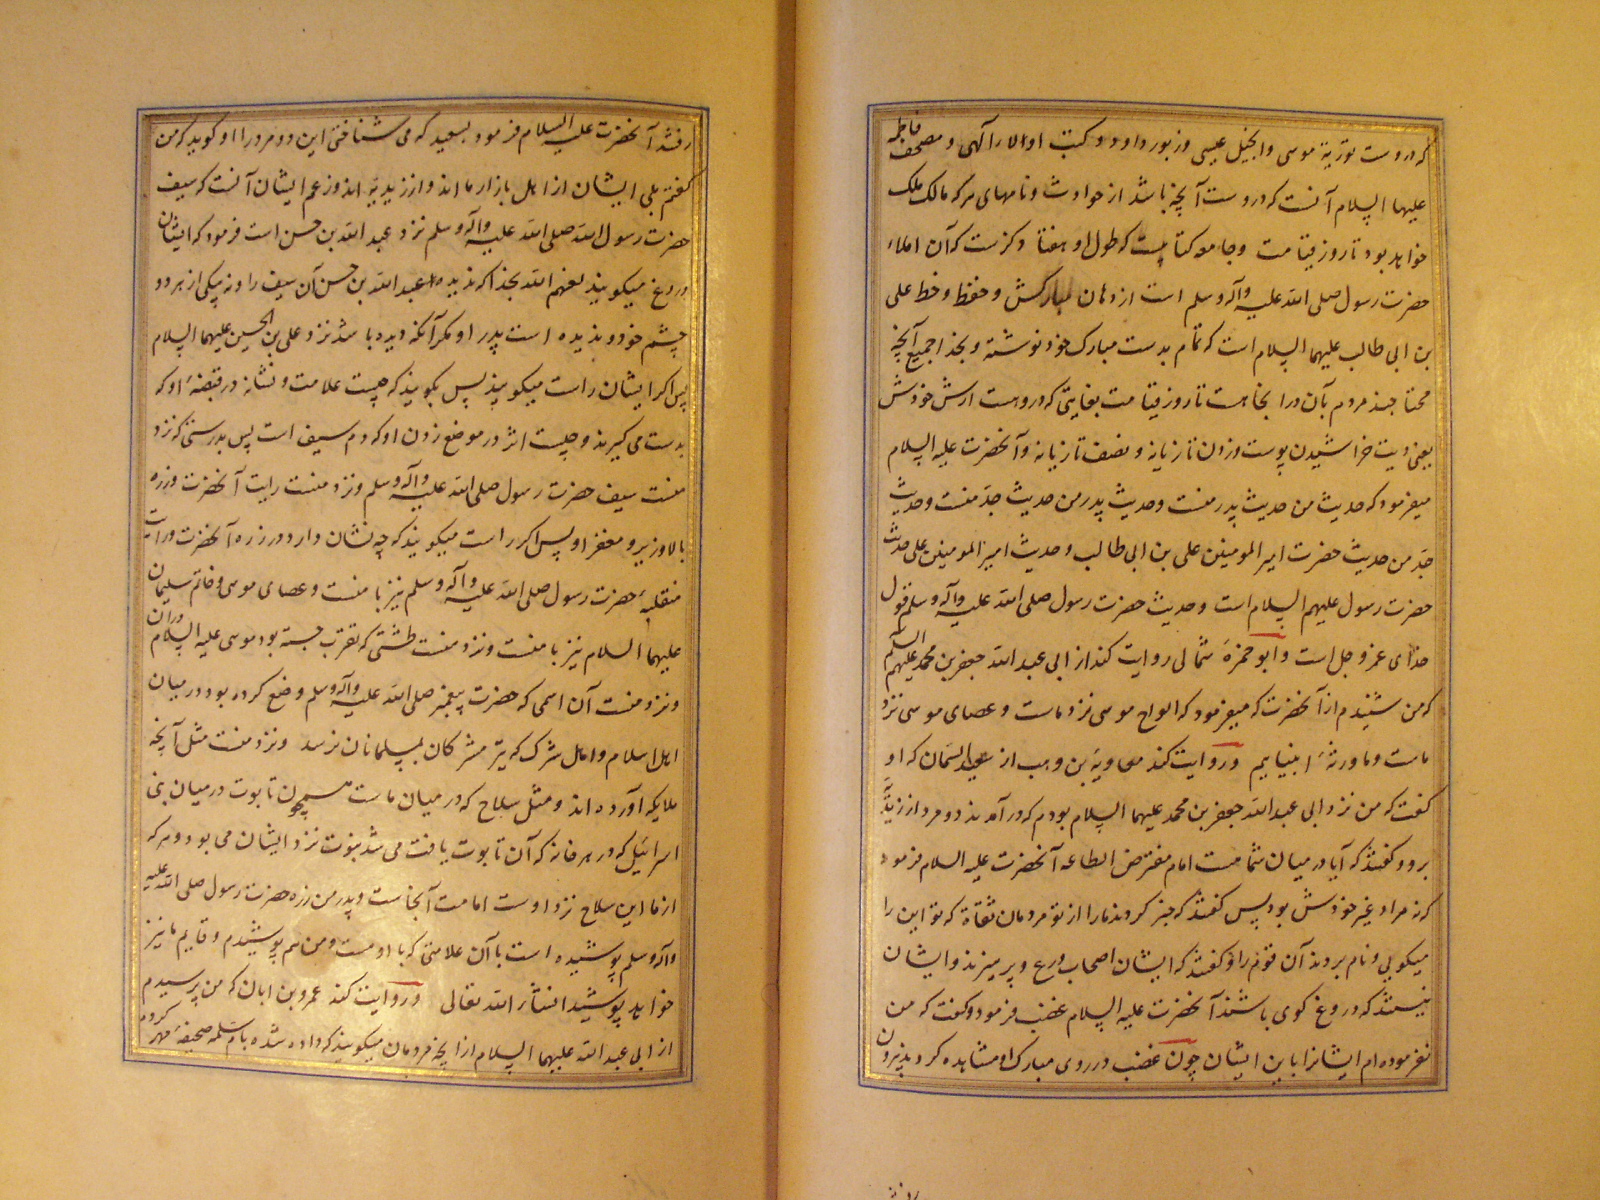 که در وست توریة موسی و انجیل عیسی و زبور داود و کتب اوالا را آلهی و مصحف فاطمه
علیها السلام آنست که در وست آنچه باشد از حوادث و نامهای هر که مالک ملک
خواهد بود تا روز قیامت و جامعه کتابیست که طول او هفتاد گزست که آن املاء
حضرت رسول صلی الله علیه وآله وسلم است از دهان مبارکش و حفظ و خط علی
بن ابی طالب علیهما السلام است که تمام بدست مبارک خود نوشته و بخدا جمیع آنچه
محتاجند مردم بآن در انجا هست تا روز قیامت بغایتی که در وهست ارش خودش
یعنی دیت خراشیدن پوست و زدن تازیانه و نصف تازیانه و آنحضرت علیه السلام
میفرمود که حدیث من حدیث پدر منست وحدیث پدر من حدیث جدّ منست وحدیث
جدّ من حدیث حضرت امیر المومنین علی بن ابی طالب وحدیث امیر المومنین علی حدیث
حضرت رسول علیهم السلام است وحدیث حضرت رسول صلی الله علیه وآله وسلم قول
خدای عز و جل است و ابو حمزهٔ ثمالی روایت کند از ابی عبد الله جعفر بن محمد علیهم السلم
که من شنیدم از آنحضرت که میفرمود که الواح موسی نزد ماست و عصای موسی نزد
ماست و ما ورثهٔ انبیاییم و روایت کند معاویة بن وهب از سعید السمان که او
گفت که من نزد ابی عبد الله جعفر بن محمد علیهما السلام بودم که در آمدند دو مرد از زیدیّه
برو و گفتند که آیا در میان شما هست امام مفترض الطاعه آنحضرت علیه السلام فرمود
که نه مراد غیر خودش بود پس گفتند که خبر کردند ما را از تو مردمان ثقاة که تو این را
میگویی و نام بردند آن قوم را و گفتند که ایشان اصحاب ورع و پرهیزند و ایشان
نیستند که دروغ گوی باشند آنحضرت علیه السلام غضب فرمود و گفت که من
نفرموده ام ایشانرا باین ایشان چون غضب در روی مبارک او مشاهده کردند بیرون
رفتند آنحضرت علیه السلام فرمود بسعید که می شناختی این دو مرد را او گوید که من
گفتم بلی ایشان از اهل بازار ما اند و از زیدیّه اند و زعم ایشان آنست که سیف
حضرت رسول الله صلی الله علیه وآله وسلم نزد عبد الله بن حسن است فرمود که ایشان
دروغ میگویند لعنهم الله بخدا که ندیده عبد الله بن حسن آن سیف را و نه بیکی از هر دو
چشم خود و ندیده است پدر او مگر آنکه دیده باشد نزد علی بن الحسین علیهما السلام
پس اگر ایشان راست میگویند پس بگویند که چیست علامت و نشانه در قبضهٔ او که
بدست می گیرند و چیست اثر در موضع زدن او که دم سیف است پس بدرستی که نزد
منست سیف حضرت رسول صلی الله علیه وآله وسلم و نزد منست رایت آنحضرت و زره
بالا و زیر و مغفر او پس اگر راست میگویند که چه نشان دارد در زره آنحضرت و رایت
منقلبهٔ حضرت رسول صلی الله علیه وآله وسلم نیز با منست و عصای موسی و خاتم سلیمان
علیهما السلام نیز با منست و نزد منست طشتی که تقرب جسته بود موسی علیه السلام دران
و نزد منست آن اسمی که حضرت پیغمبر صلی الله علیه وآله وسلم وضع کرده بود در میان
اهل اسلام و اهل شرک که تیر مشرکان بمسلمانان نرسد و نزد منست مثل آنچه
ملایکه آورده اند و مثل سلاح که در میان ماست همچون تابوت در میان بنی
اسرائیل که در هر خانه که آن تابوت یافت می شد نبوت نزد ایشان می بود و هر که
از ما این سلاح نزد اوست امامت آنجاست و پدر من زره حضرت رسول صلی الله علیه
وآله وسلم پوشیده است با آن علامتی که با اوست و من هم پوشیدم و قایم ما نیز
خواهد پوشید انشاء الله تعالی و روایت کند عمرو بن ابان که من پرسیدم
از ابی عبد الله علیهما السلام از انچه مردمان میگویند که داده شده بام سلمه صحیفهٔ مهر کرده